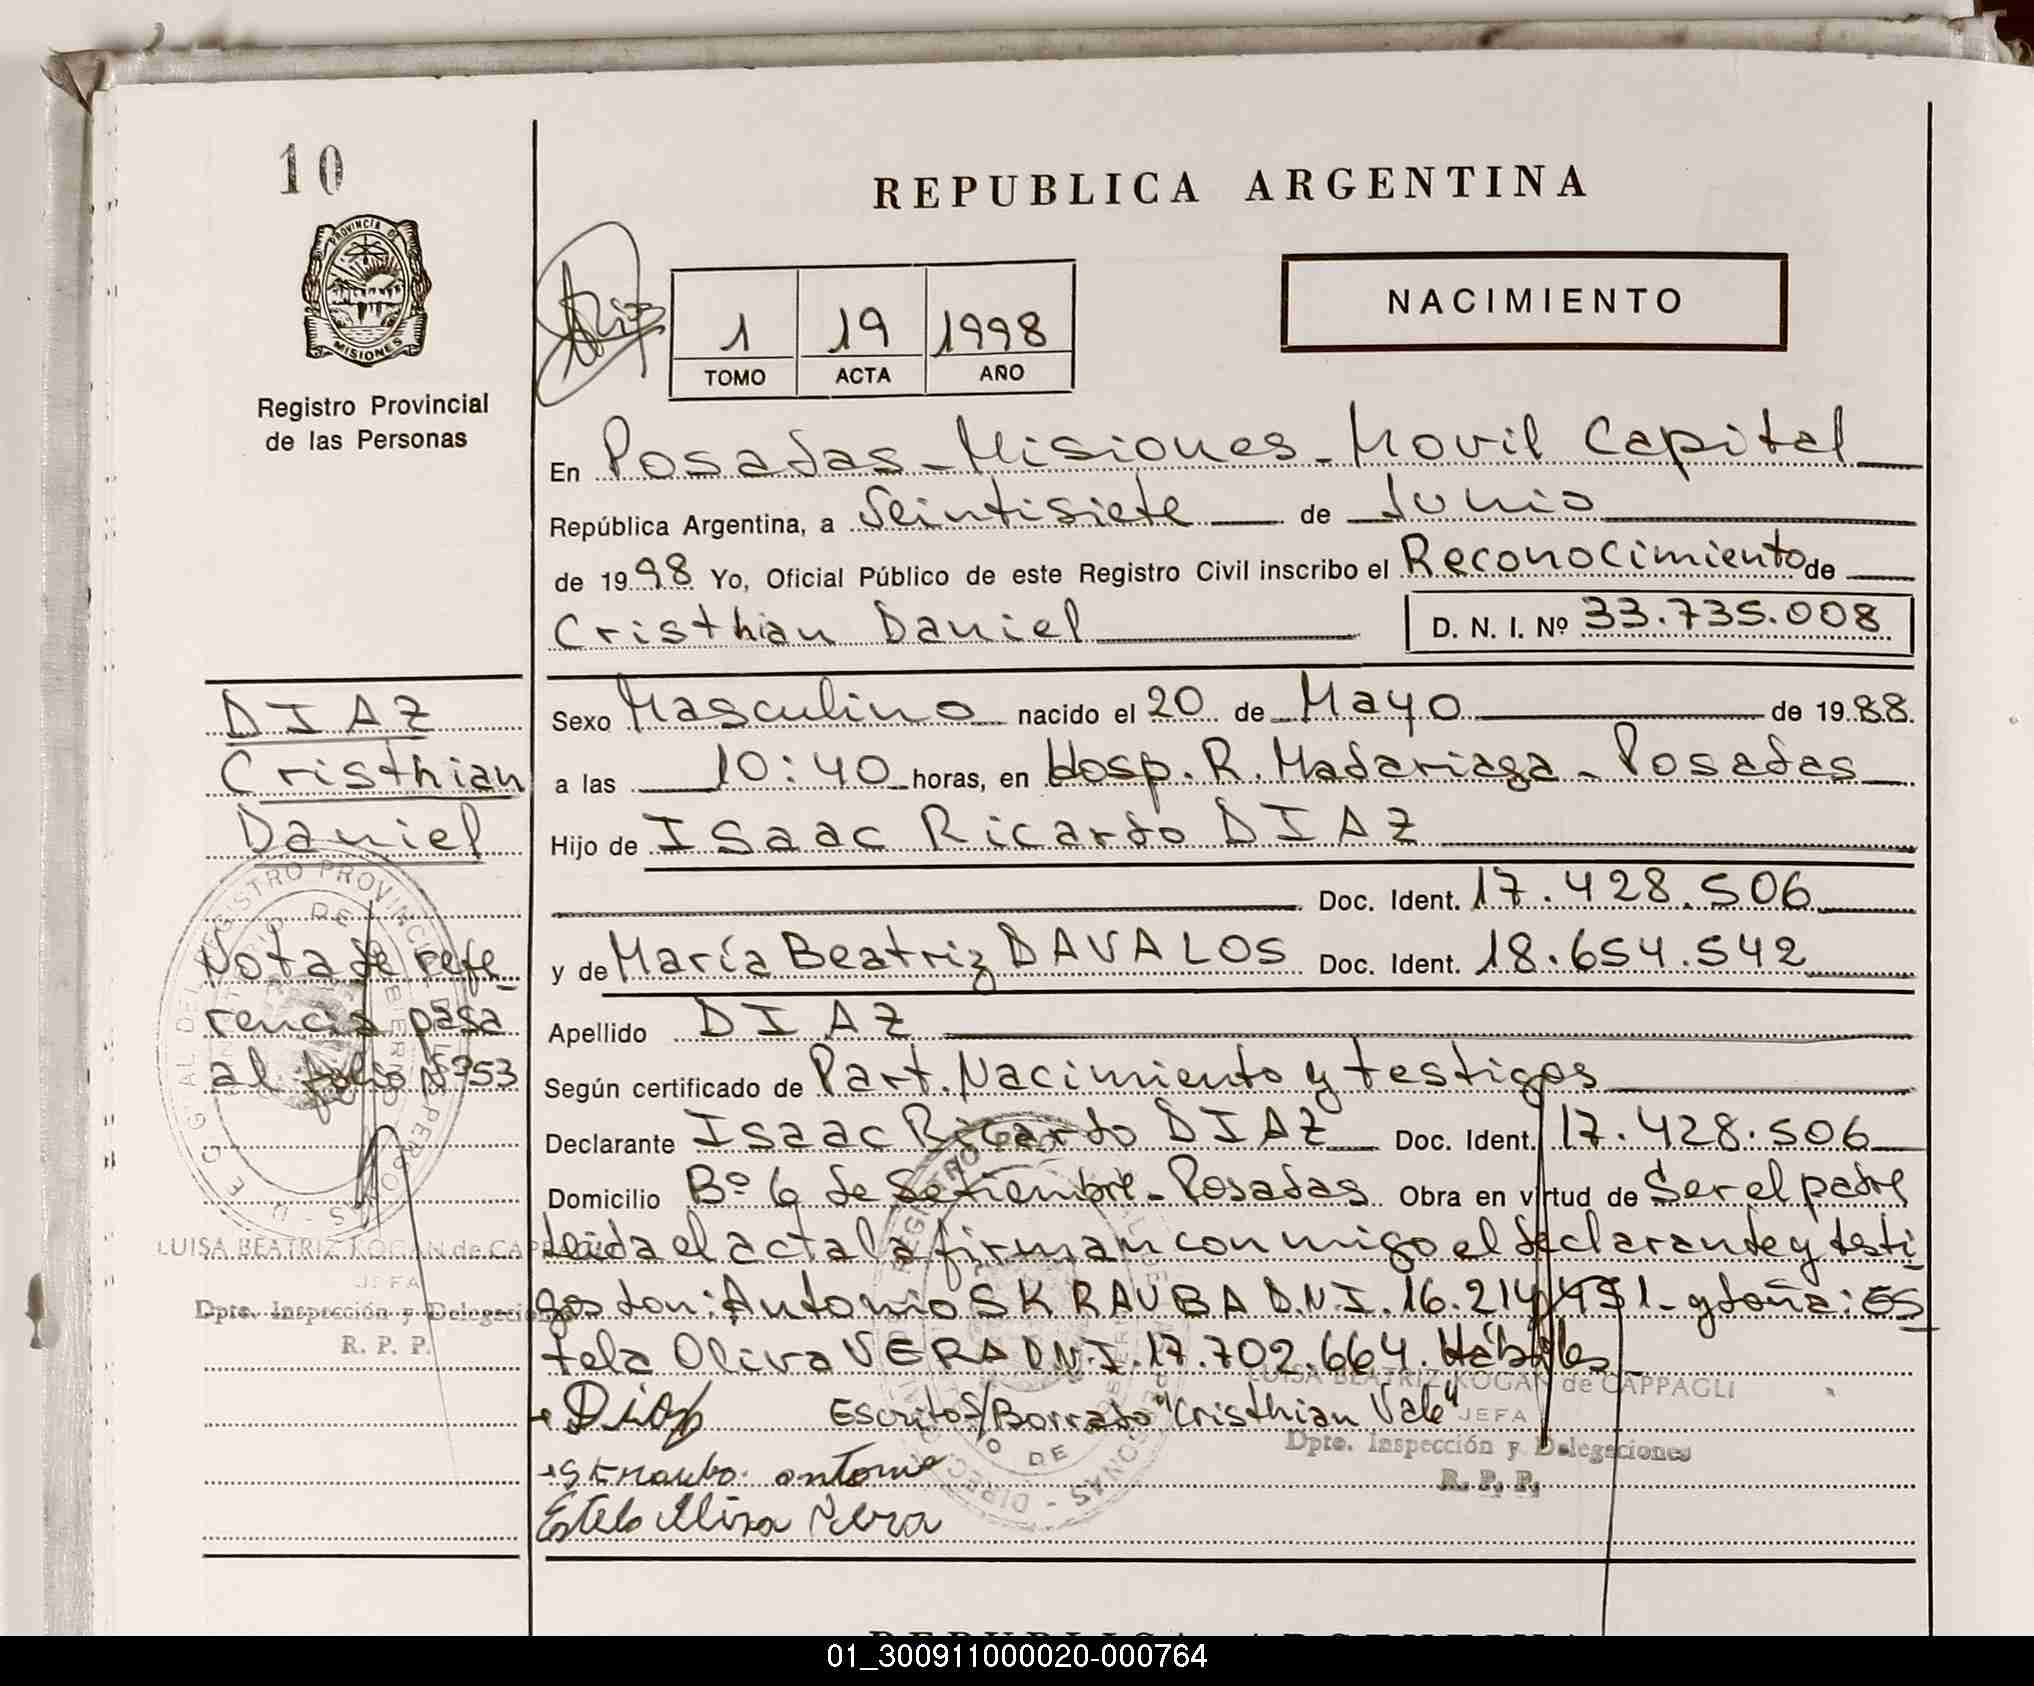 10
REPUBLICA ARGENTINA
PROVINCIA DE
MISIONES
Registro Provincial
de las Personas
1 19 1998
TOMO ACTA AÑO
NACIMIENTO
En Posadas - Misiones - Movil Capital
República Argentina, a Veintisiete de Junio
de 1998 Yo, Oficial Público de este Registro Civil inscribo el Reconocimiento de
Cristhian Daniel D. N. I. Nº 33.735.008
Sexo Masculino nacido el 20 de Mayo de 1988.
a las 10:40 horas, en Hosp. R. Madariaga - Posadas
Hijo de Isaac Ricardo DIAZ
Doc. Ident. 17.428.506
y de María Beatriz DAVALOS Doc. Ident. 18.654.542
Apellido DIAZ
Según certificado de Part. Nacimiento y testigos
Declarante Isaac Ricardo DIAZ Doc. Ident. 17.428.506
Domicilio Bº 6 de Setiembre - Posadas Obra en virtud de Ser el padre
Leida el acta la firman conmigo el declarante y testi
gos don: Antonio SKRAUBA D.N.I. 16.214. - y doña: Es
tela Oliva VERA D.N.I. 17.702.664. Hábiles
Diaz Escrito S/Borrado "Cristhian Vale"
Antonio
Estela Vera
DIAZ
Cristhian
Daniel
Nota de refe
rencia pasa
al folio Nº 353
LUISA BEATRIZ KOGAN de CAPPAGLI
JEFA
Dpto. Inspección y Delegaciones
R. P. P.
LUISA BEATRIZ KOGAN de CAPPAGLI
JEFA
Dpto. Inspección y Delegaciones
R. P. P.
01_300911000020-000764